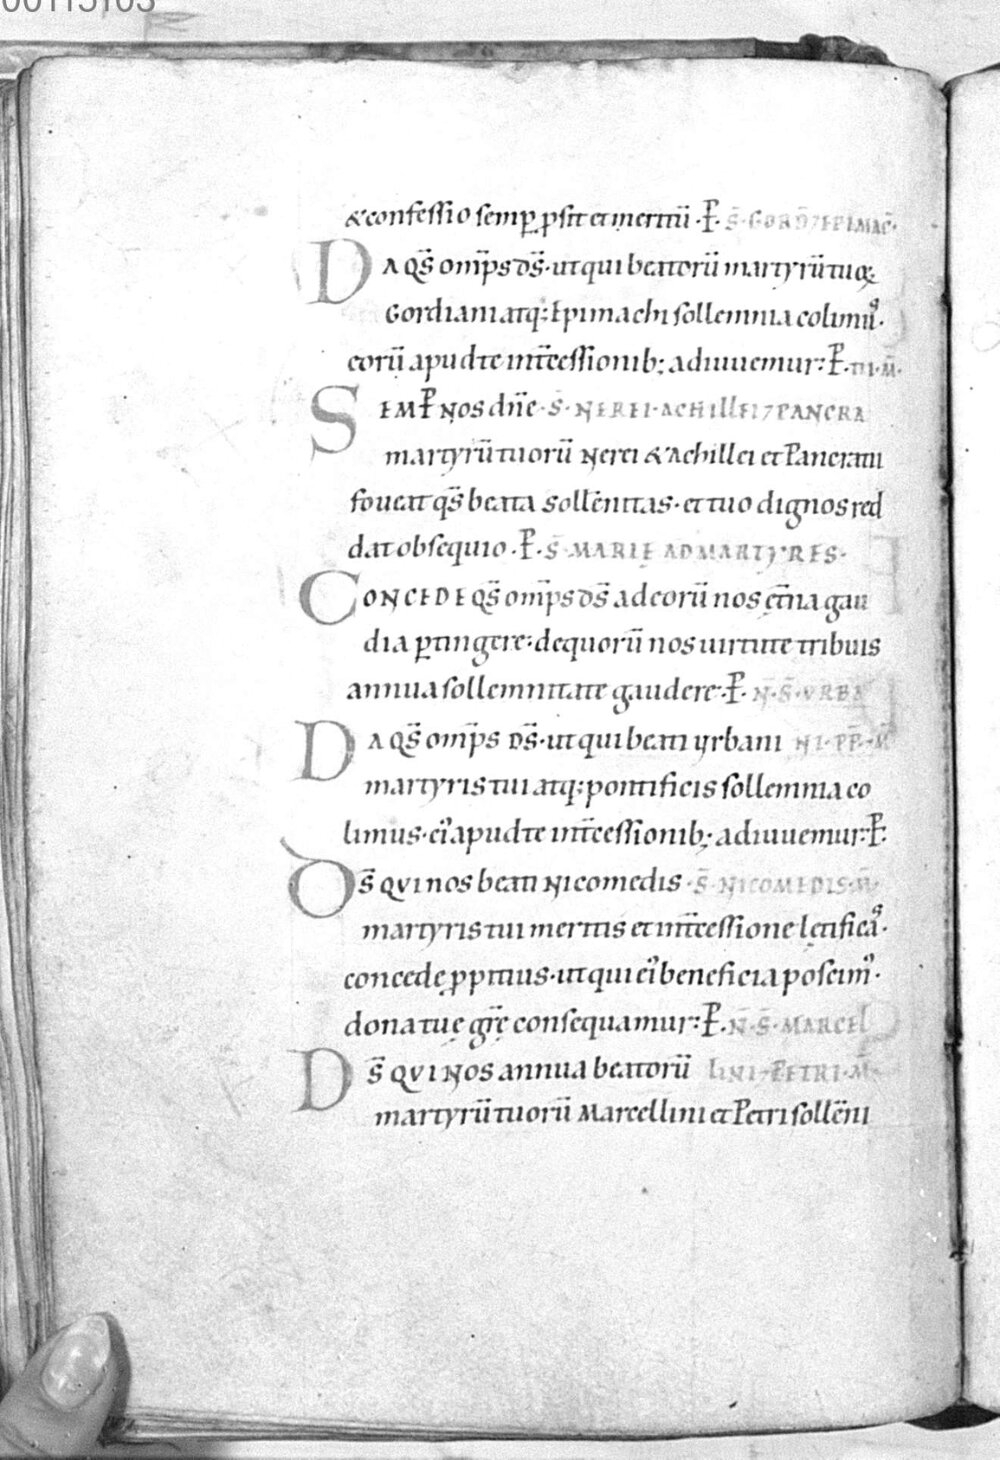 00115103
&confessio semꝑ ꝓsit et meritū ·P̄· S̄·GORD̄ ⁊ EPIMAC̄·
DA QS̄ om̄ps ds̄·ut qui beatorū martyrū tuoꝝ
Gordiani atq; Epimachi sollemnia colimꝰ·
eorū apud te int̄cessionib; adiuuemur: P̄· III·M̄·
SEMP̄ NOS dn̄e·S̄·NEREI·ACHILLEI ⁊ PANCRA
martyrū tuorū Nerei &Achillei et Pancratii
foueat qs̄ beata sollēnitas·et tuo dignos red
dat obsequio·P̄·S̄·MARIE AD MARTYRES·
CONCEDE QS̄ om̄ps ds̄ ad eorū nos et̄na gau
dia ꝑtingere·de quorū nos uirtute tribuis
annua sollemnitate gaudere·P̄· N̄·S̄·VRBA
DA QS̄ om̄ps ds̄·ut qui beati Vrbani NI·PP̄·M̄
martyris tui atq; pontificis sollemnia co
limus·eiꝰ apud te int̄cessionib; adiuuemur:P̄·
DS̄ QVI nos beati Nicomedis·S̄·NICOMEDIS·M̄·
martyris tui meritis et int̄cessione lętificaꝰ·
concede ꝓpitius·ut qui eiꝰ beneficia poscimꝰ·
dona tuę gr̄ę consequamur:P̄·N̄·S̄·MARCEL
DS̄ QVI NOS annua beatorū LINI·PETRI·M̄·
martyrū tuorū Marcellini et Petri sollēni